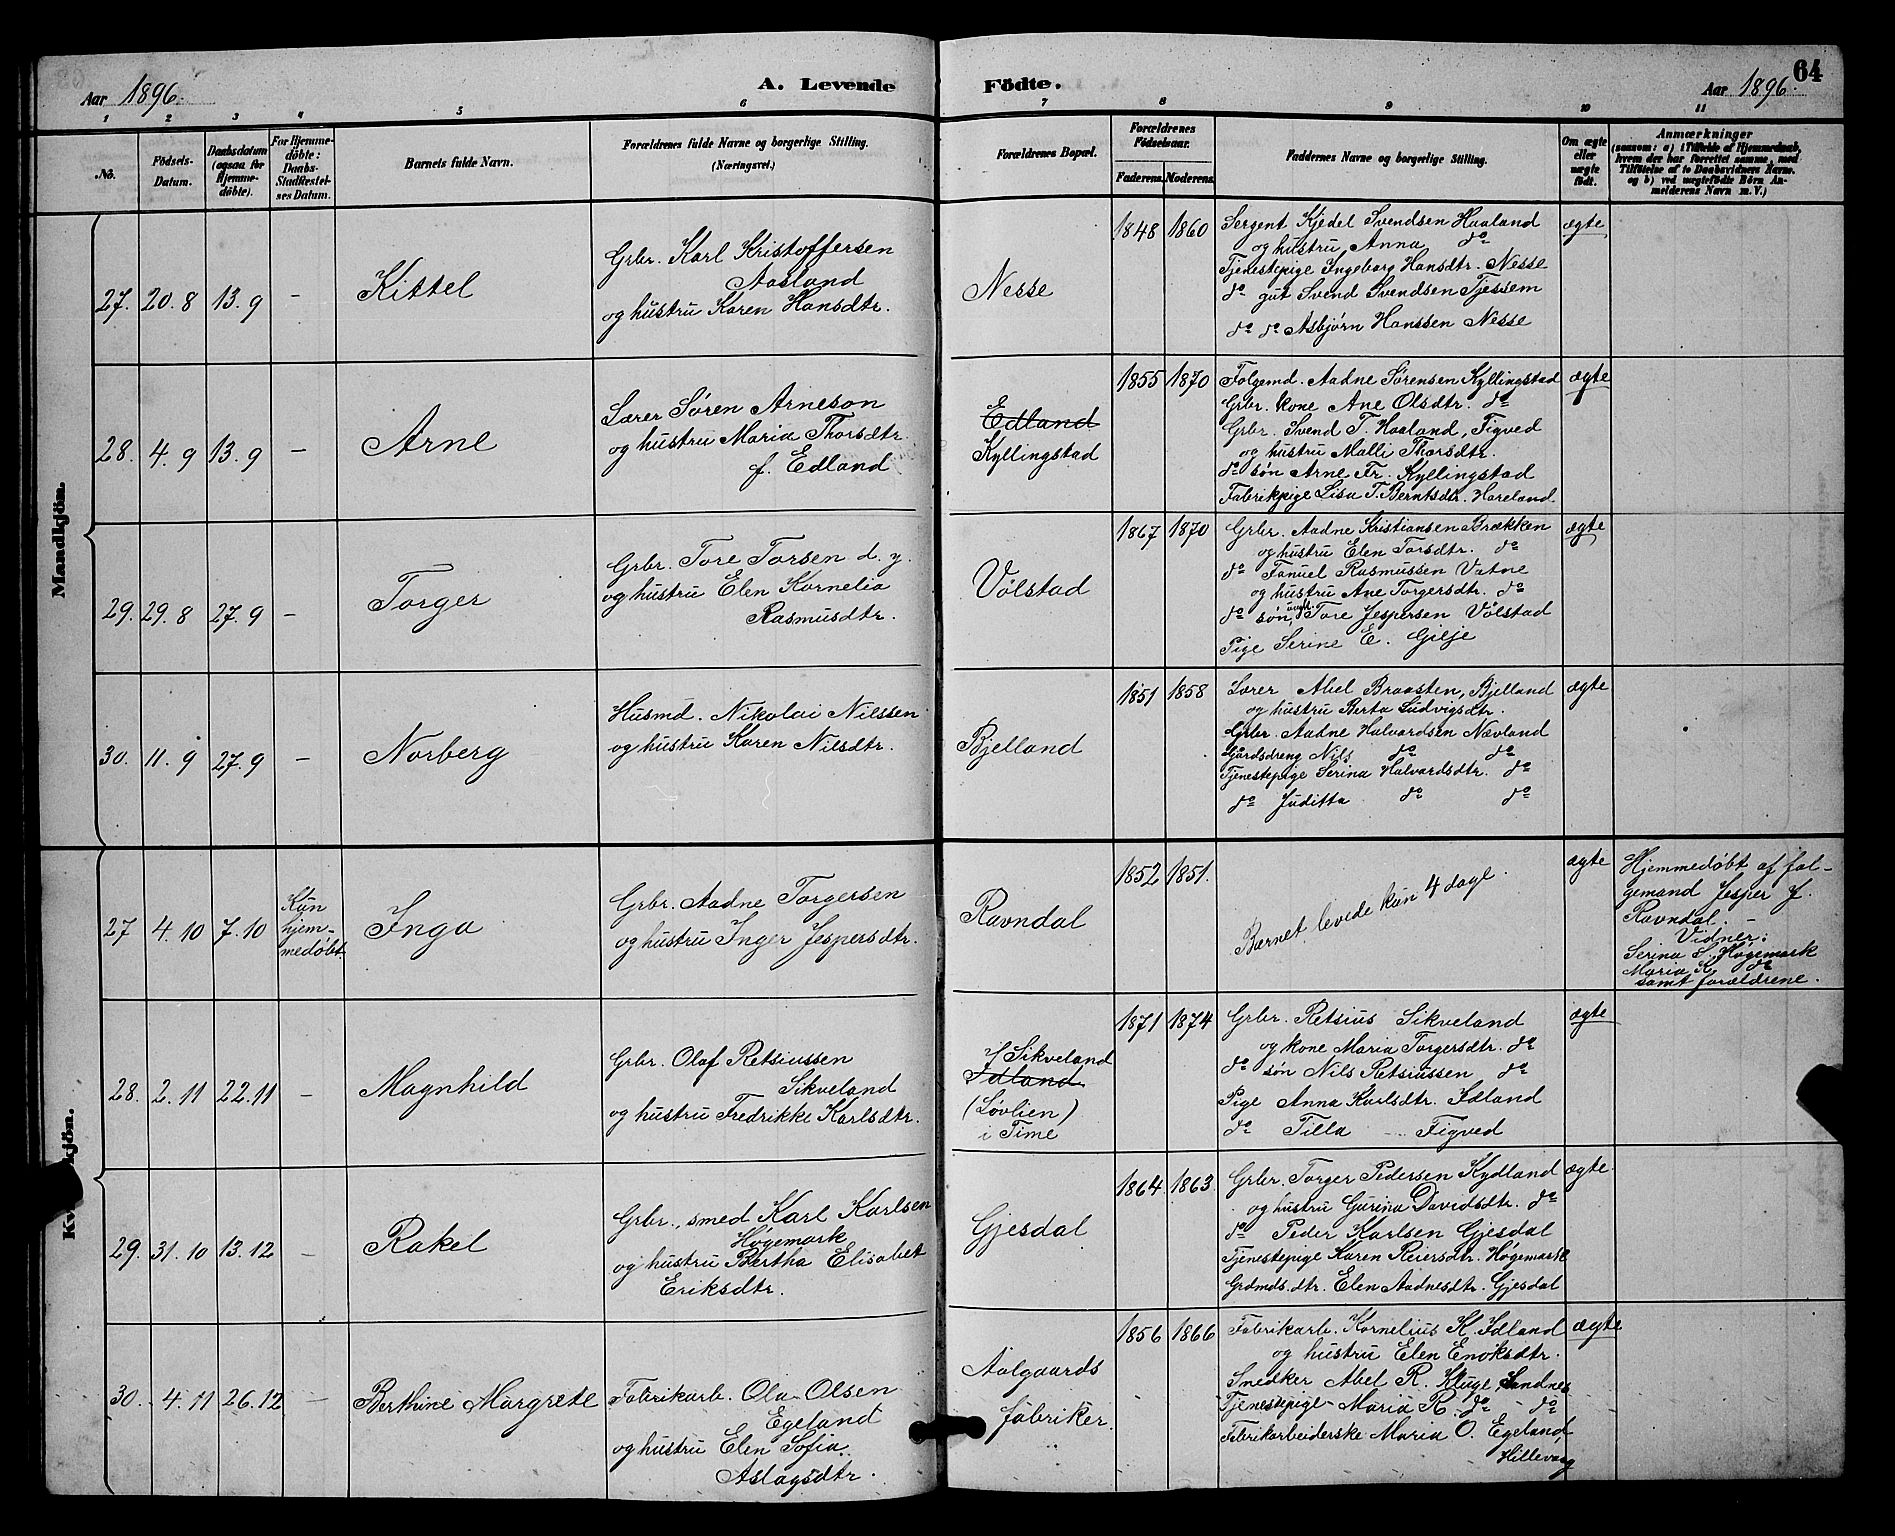 64
Aar 1896.
A. Levende Födte.
Aar 1896.
1 2 3 4 5 6 7 8 9 10 11
No.
Födsels-Datum.
Daabsdatum (ogsaa for Hjemme-döbte).
For Hjemme-döbte: Daabs-Stadfæstel-ses Datum.
Barnets fulde Navn.
Forældrenes fulde Navne og borgerlige Stilling.
(Næringsvei.)
Forældrenes Bopæl.
Forældrenes Födselsaar.
Faderens. Moderens.
Faddernes Navne og borgerlige Stilling.
Om ægte eller uægte födt.
Anmærkninger
(saasom: a) i Tilfælde af Hjemmedaab, hvem der har forrettet samme, med Tilföielse af to Daabsvidners Navne. og b) ved uægtefödte Börn An-melderens Navn m. V.)
Mandkjön.
27. 20.8 13.9 - Kittel
Grbr. Karl Kristoffersen
Aasland
og hustru Karen Hansdtr.
Nesse
1848 1860
Sergent Kjedel Svendsen Haaland
og hustru Anna do
Tjenestepige Ingeborg Hansdtr. Nesse
do gut Svend Svendsen Tjessem
do do Asbjørn Hanssen Nesse
ægte
28. 4.9 13.9 - Arne
Lærer Søren Arneson
og hustru Maria Thorsdtr.
f. Edland
Edland
Kyllingstad
1855 1870
Folgemd. Aadne Sørensen Kyllingstad
Grbr. kone Ane Olsdtr. do
Grbr. Svend T. Haaland, Figved
og hustru Malli Thorsdtr.
do søn Arne Fr. Kyllingstad
Fabrikpige Lisa T. Berntsdtr. Hareland.
ægte
29. 29.8 27.9 - Torger
Grbr. Tore Torsen d. y.
og hustru Elen Kornelia
Rasmusdtr.
Vølstad
1867 1870
Grbr. Aadne Kristiansen Brækken
og hustru Elen Torsdtr. do
do Fanuel Rasmussen Vatne
og hustru Ane Torgersdtr. do
do søn, ungk. Tore Jespersen Vølstad
Pige Serine E. Gilje
ægte
30. 11.9 27.9 - Norberg
Husmd. Nikolai Nilssen
og hustru Karen Nilsdtr.
Bjelland
1851 1858
Lærer Abel Braasten, Bjelland
og hustru Berta Ludvigsdtr.
Grbr. Aadne Halvardsen Nævland
Gårdsdreng Nils do do
Tjenestepige Serina Halvardsdtr. do
do Juditta do do
ægte
Kvindekjön.
27 4.10 7.10
Kun
hjem-
medøbt
Inga
Grbr. Aadne Torgersen
og hustru Inger Jespersdtr.
Ravndal
1852 1851.
Barnet levede kun 4 dage.
ægte
Hjemmedøbt af fol-
gemand Jesper J.
Ravndal. -
Vidner:
Serina S. Høgemark
Maria K. do
samt forældrene.
28. 2.11 22.11 - Magnhild
Grbr. Olaf Retsiussen
Sikveland
og hustru Fredrikke Karlsdtr.
Sikveland
Idland
(Løvlien)
i Time
1871 1874
Grbr. Retsius Sikveland
og kone Maria Torgersdtr. do
do søn Nils Retsiussen do
Pige Anna Karlsdtr. Idland
do Tilla - Figved
ægte
29. 31.10 13.12 - Rakel
Grbr., smed Karl Karlsen
Høgemark
og hustru Bertha Elisabet
Eriksdtr.
Gjesdal
1864 1863
Grbr. Torger Pedersen Kydland
og hustru Gurina Davidsdtr. do
do Peder Karlsen Gjesdal
Tjenestepige Karen Reiersdtr. Høgemark
Grdmds.dtr. Elen Aadnesdtr. Gjesdal
ægte.
30. 4.11 26.12 - Berthine Margrete
Fabrikarb. Ola Olsen
Egeland
og hustru Elen Sofia
Aslagsdtr.
Aalgaards
fabriker.
1856 1866
Fabrikarb. Kornelius K. Idland
og hustru Elen Enoksdtr.
Snedker Abel R. Kluge, Sandnes
Tjenestepige Maria R. do - do
Fabrikarbeiderske Maria O. Egeland,
Hillevaag
ægte